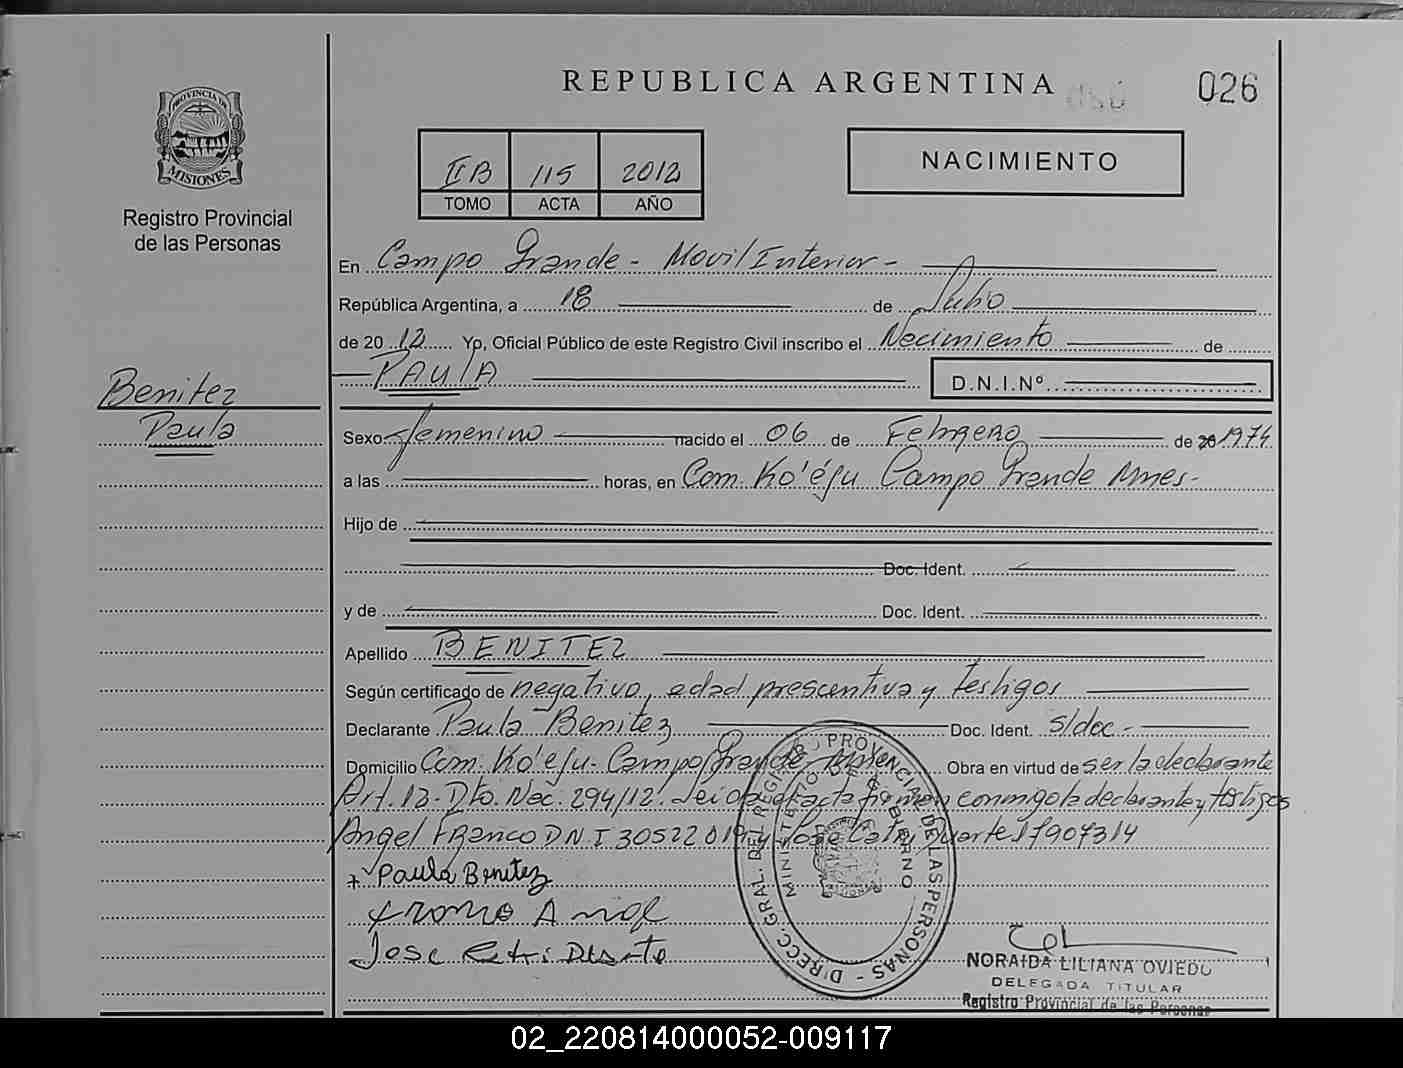 REPUBLICA ARGENTINA
026
PROVINCIA DE
MISIONES
Registro Provincial
de las Personas
IIB 115 2012
TOMO ACTA AÑO
NACIMIENTO
En Campo Grande - Movil Interior -
República Argentina, a 18 de Julio
de 2012 Yo, Oficial Público de este Registro Civil inscribo el Nacimiento de
PAULA D.N.I.Nº
Benitez
Paula
Sexo femenino nacido el 06 de Febrero de 1974
a las horas, en Com. Ko'éju Campo Grande Mnes-
Hijo de
Doc. Ident.
y de Doc. Ident.
Apellido BENITEZ
Según certificado de negativo, edad presuntiva y testigos
Declarante Paula Benitez Doc. Ident. s/doc-
Domicilio Com. Ko'éju- Campo Grande, Mnes Obra en virtud de ser la declarante
Art. 12- Dto. Nac. 294/12. Leida el acta firman conmigo la declarante y testigos
Angel Franco D N I 30522019 y Jose Catri Duarte 17907314
+ Paula Benitez
Franco Angel
Jose Catri Duarte
DIRECC. GRAL. DEL REGISTRO PROVINCIAL DE LAS PERSONAS -
MINISTERIO DE GOBIERNO
NORAIDA LILIANA OVIEDO
DELEGADA TITULAR
Registro Provincial de las Personas
02_220814000052-009117